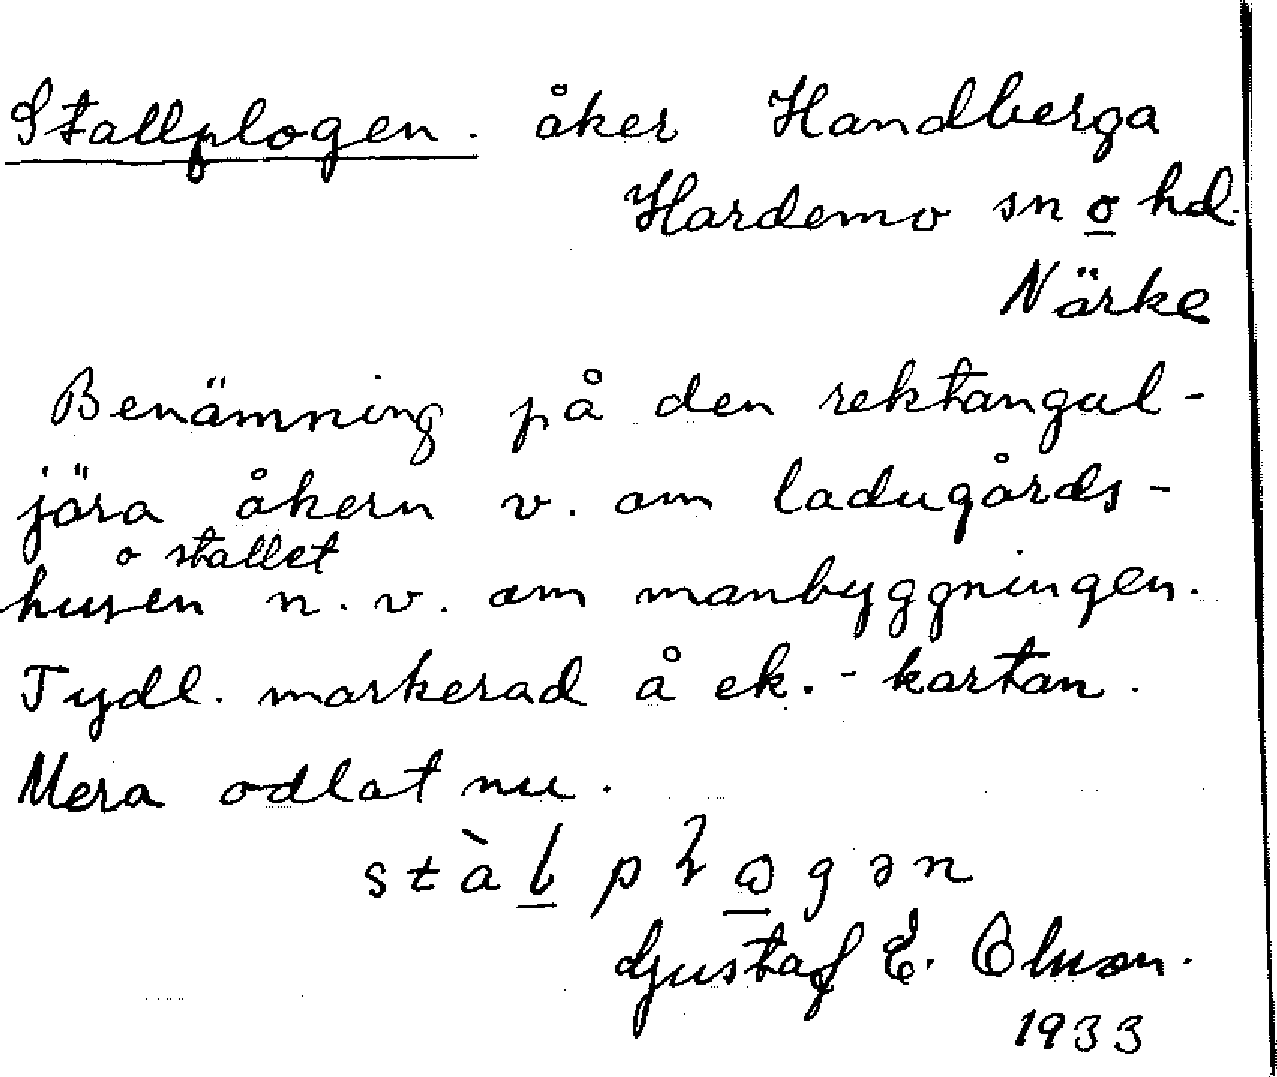 Stallplogen. åker Handberga
Hardemo sn o hd.
Närke
Benämning på den rektangul-
jära åkern v. om ladugårds-
o stallet
husen n.v. om manbyggningen.
Tydl. markerad å ek.-kartan.
Mera odlat nu.
Gustaf E. Olsson.
1933